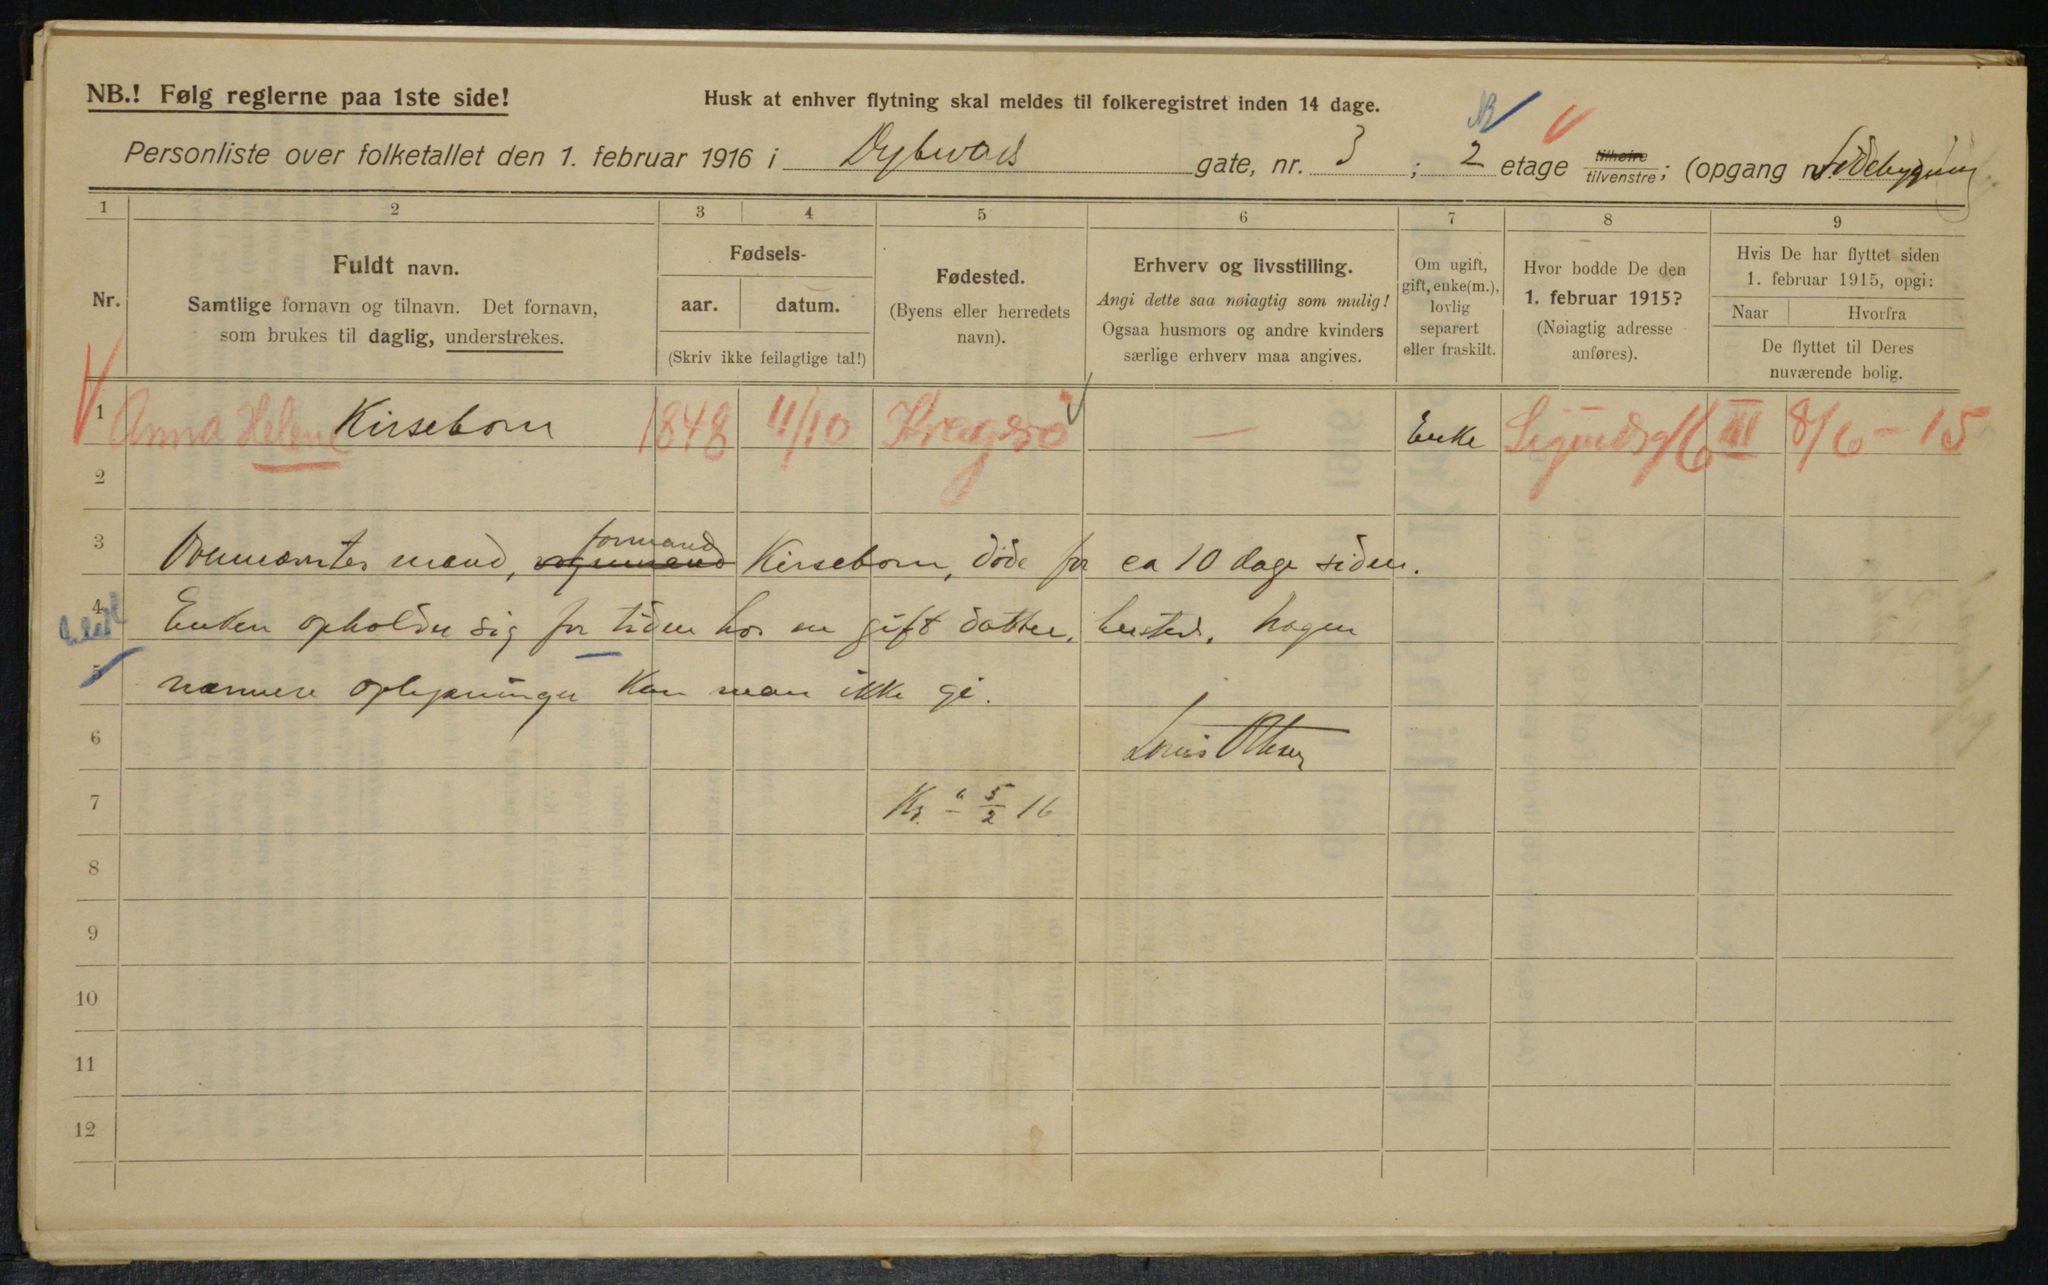 NB.! Følg reglerne paa 1ste side!
Husk at enhver flytning skal meldes til folkeregistret inden 14 dage.
Personliste over folketallet den 1. februar 1916 i Dybwads gate, nr. 3 ; 2 etage tilhøire tilvenstre; (opgang nr. Sidebygning
1 2 3 4 5 6 7 8 9
Nr.
Fuldt navn.
Samtlige fornavn og tilnavn. Det fornavn,
som brukes til daglig, understrekes.
Fødsels-
aar. datum.
(Skriv ikke feilagtige tal!)
Fødested.
(Byens eller herredets
navn).
Erhverv og livsstilling.
Angi dette saa nøiagtig som mulig!
Ogsaa husmors og andre kvinders
særlige erhverv maa angives.
Om ugift,
gift, enke(m.),
lovlig
separert
eller fraskilt.
Hvor bodde De den
1. februar 1915?
(Nøiagtig adresse
anføres).
Hvis De har flyttet siden
1. februar 1915, opgi:
Naar Hvorfra
De flyttet til Deres
nuværende bolig.
1 Anna Helene Kirsebom 1848 11/10 Kragerø — Enke Sigurdsg 16 III 8/6 - 15
2
3 Ovennævntes mand, formand Kirsebom, døde for ca 10 dage siden.
4 Enken opholder sig for tiden hos en gift datter, hersteds. Nogen
5 nærmere oplysninger kan man ikke gi.
6 Louis Olsen
7 Kr. a 5/2 16
8
9
10
11
12